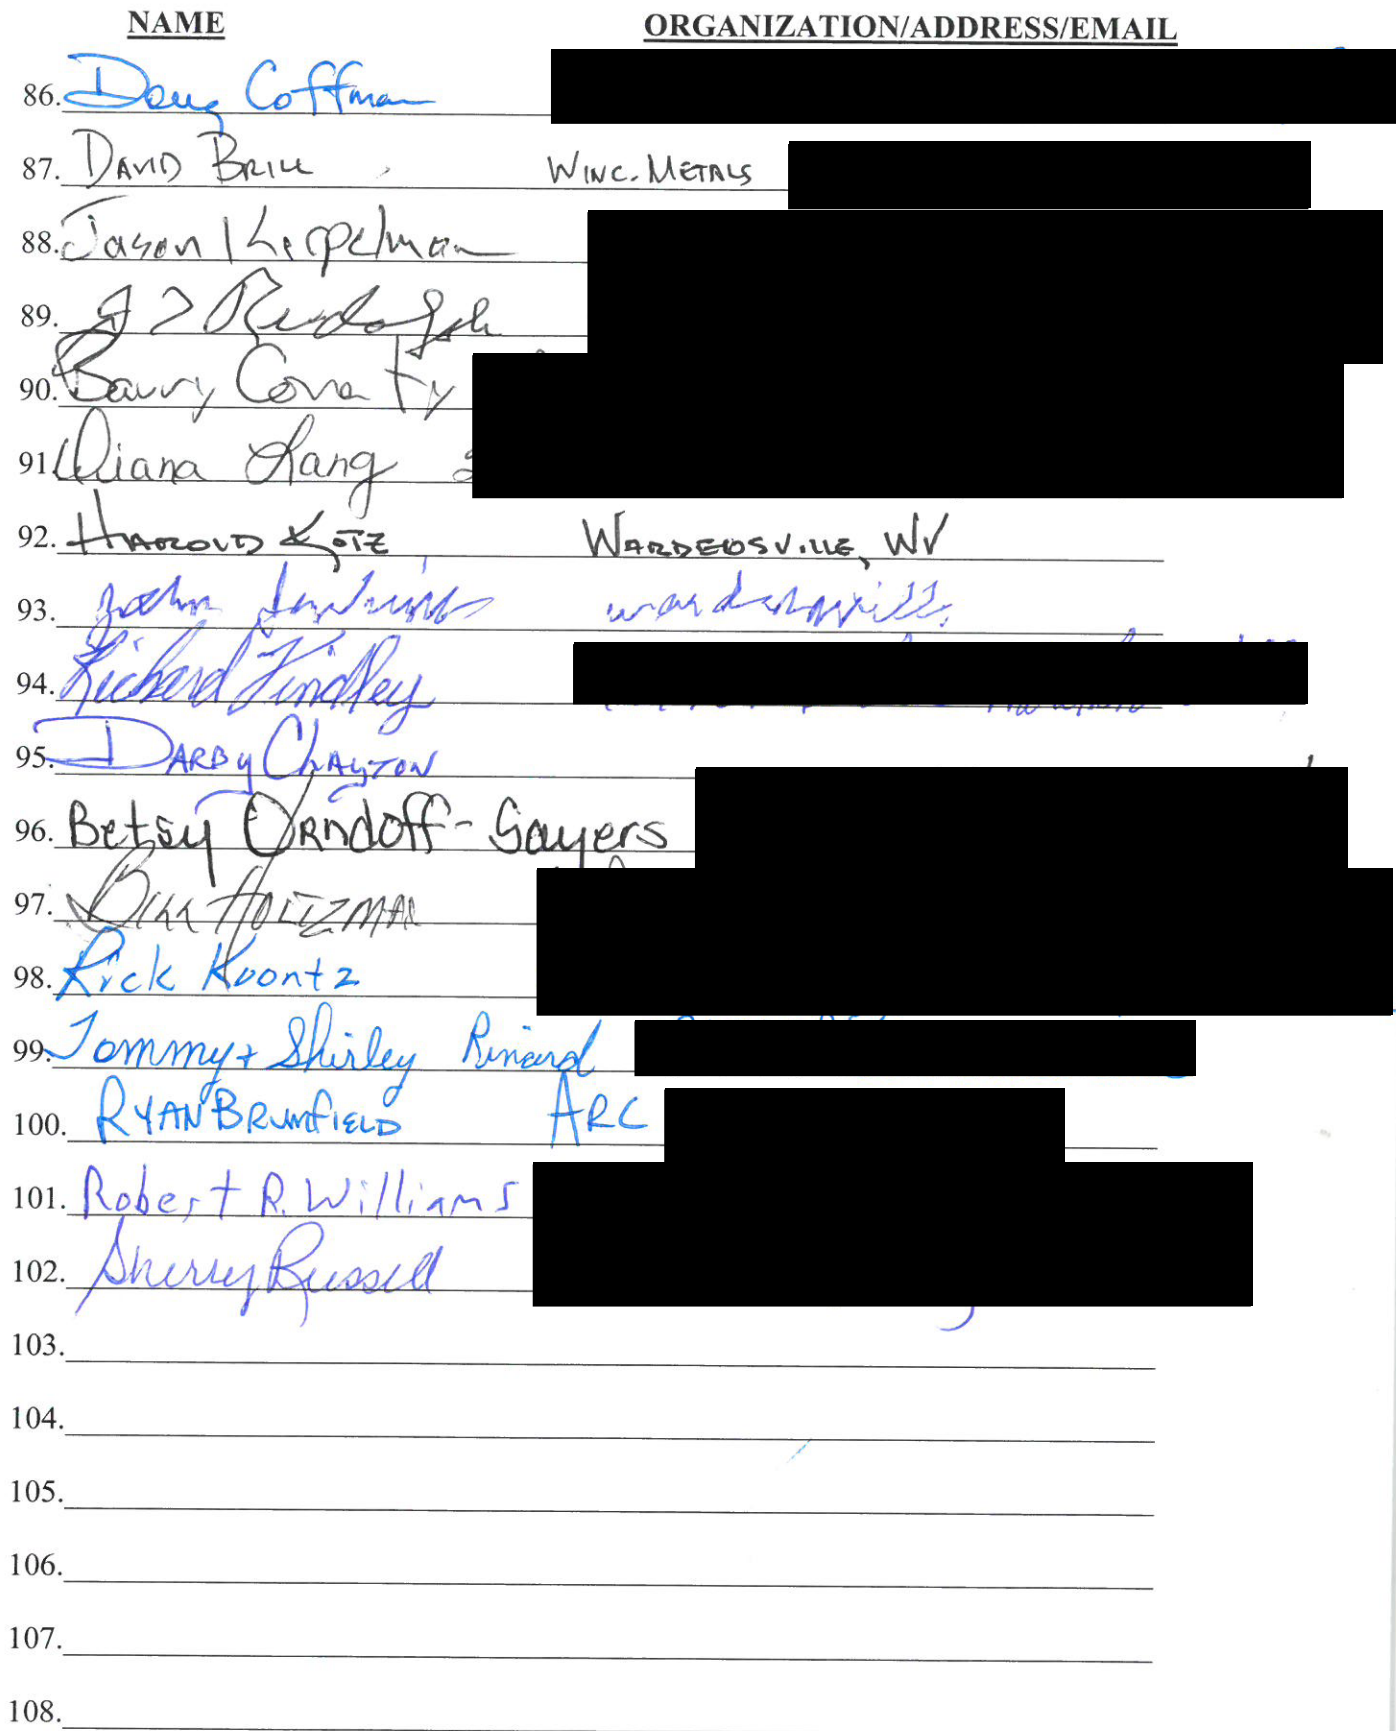 NAME ORGANIZATION/ADDRESS/EMAIL
86. Doug Coffman
87. DAVID BRILL WINC. METALS
88. Jason Kerpelman
89. Rudolph
90. Barry
91. Diana Lang
92. HAROLD KOTZ WARDENSVILLE, WV
93. John Jenkins wardensville
94. Richard Findley
95. DARBY CLAYTON
96. Betsy ORNdoff-Sayers
97. BILL HOLTZMAN
98. Rick Koontz
99. Tommy + Shirley Rinard
100. RYAN BRUMFIELD ARC
101. Robert R. Williams
102. Sherry Russell
103.
104.
105.
106.
107.
108.